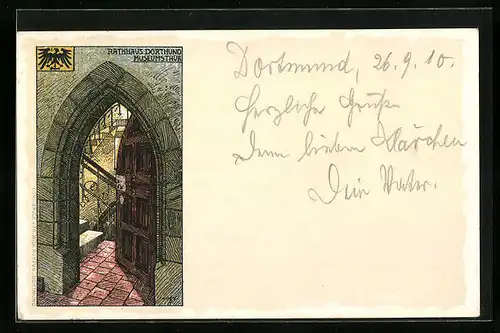 RATHHAUS DORTMUND
MUSEUMSTHÜR
Dortmund, 26.9.10.
Herzliche Grüße
Dem lieben Klärchen
Dein Vater.